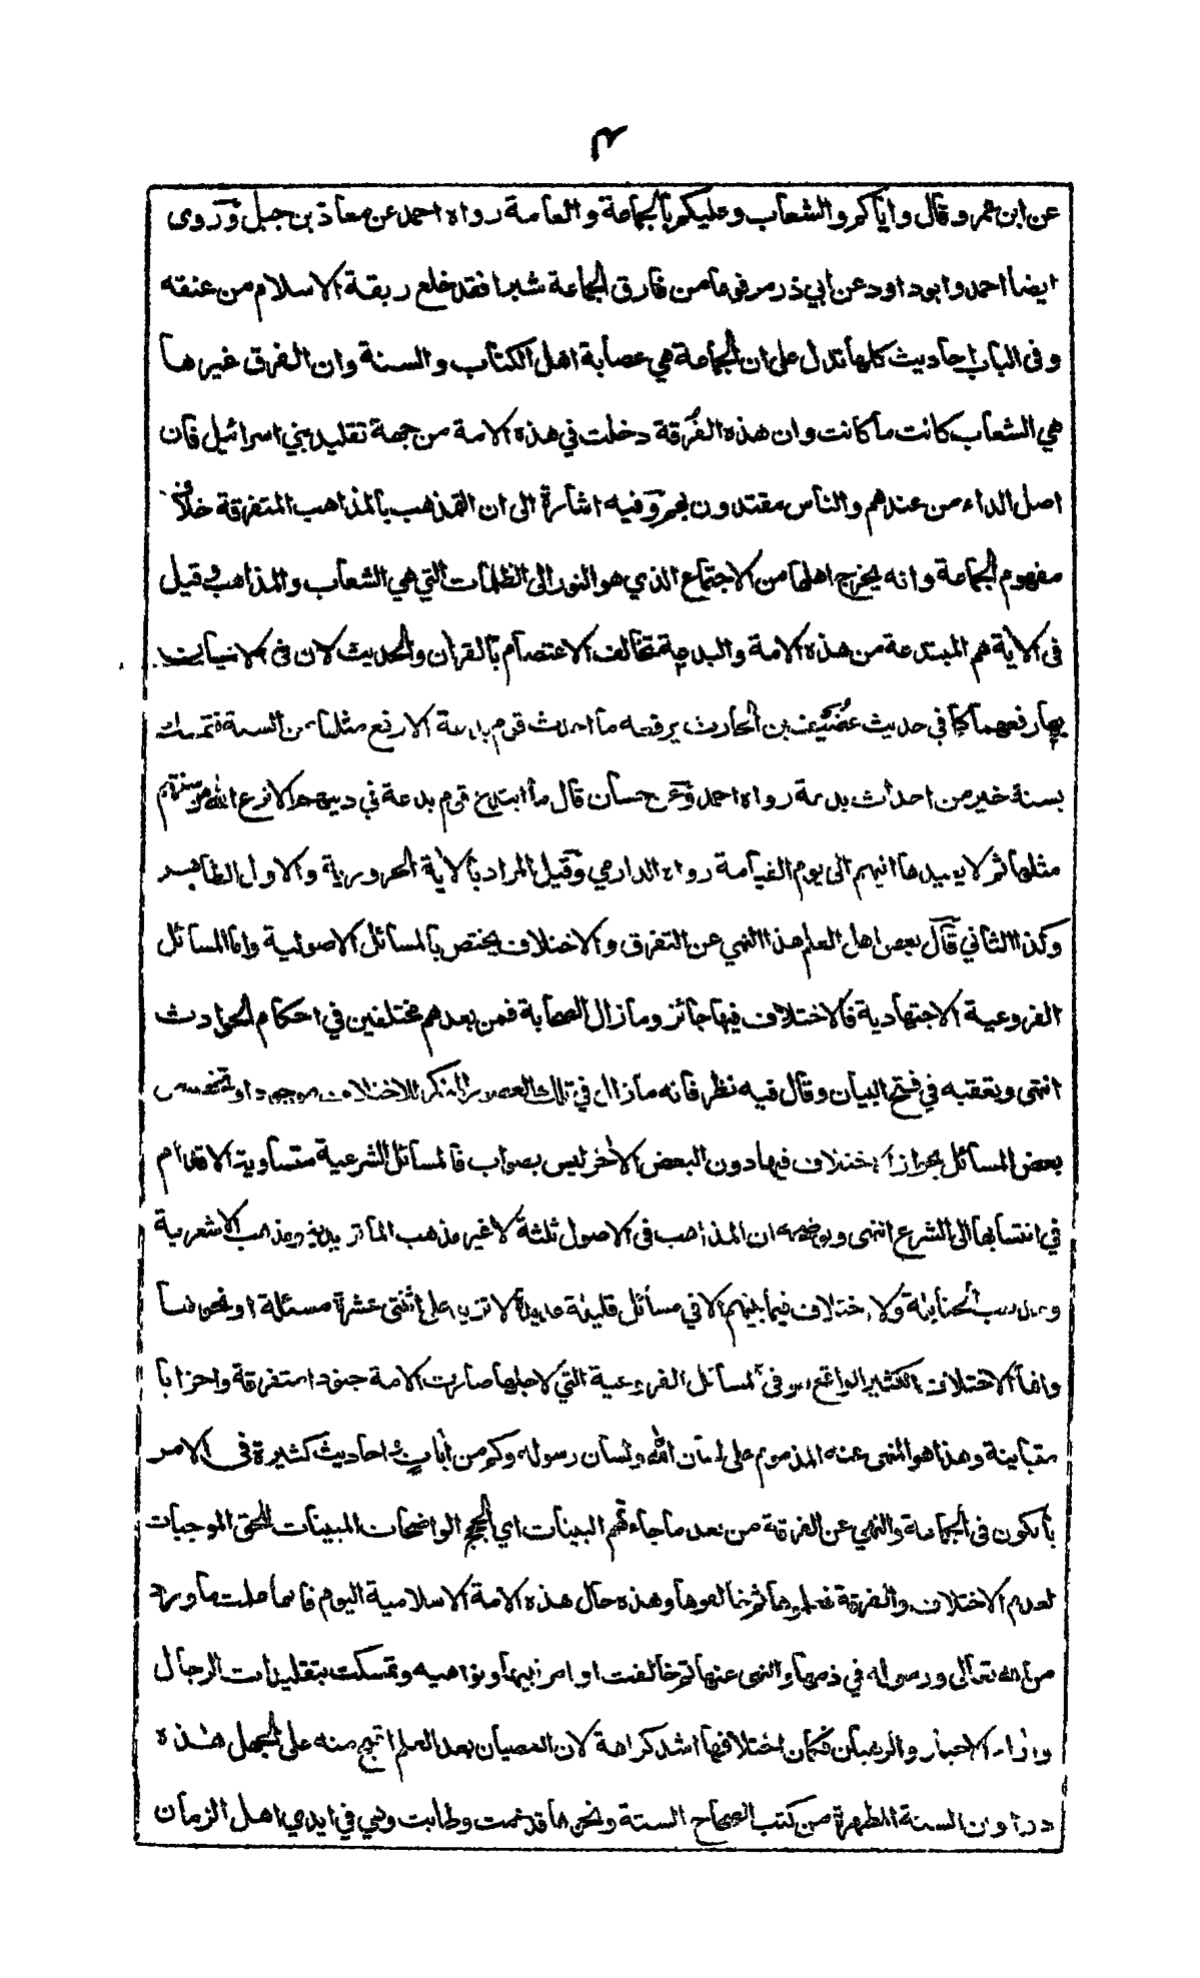 ٤
عن ابن عمر وقال واياكم والشعاب وعليكم بالجماعة والعامة رواه احمد عن معاذ بن جبل وروى
ايضا احمد وابوداود عن ابي ذر مرفوعا من فارق الجماعة شبرا فقد خلع ربقة الاسلام من عنقه
وفى الباب احاديث كلها تدل على ان الجماعة هي عصابة اهل الكتاب والسنة وان الفرق غيرها
هي الشعاب كانت ما كانت وان هذه الفرقة دخلت في هذه الامة من جهة تقليد بني اسرائيل فان
اصل الداء من عندهم والناس مقتدون بهم وفيه اشارة الى ان التمذهب بالمذاهب المتفرقة خلاف
مفهوم الجماعة وانه يخرج اهلها من الاجتماع الذي هو النور الى الظلمات التي هي الشعاب والمذاهب وقيل
فى الاية هم المبتدعة من هذه الامة والبدعة تخالف الاعتصام بالقران والحديث لان فى الاتيان
بها رفعهما كما في حديث غضيف بن الحارث يرفعه ما احدث قوم بدعة الا رفع مثلها من السنة فتمسك
بسنة خير من احداث بدعة رواه احمد وعن حسان قال ما ابتدع قوم بدعة في دينهم الا نزع الله من سنتهم
مثلها ثم لا يعيدها اليهم الى يوم القيامة رواه الدارمي وقيل المراد بالاية الحرورية والاول الظاهر
وكذا الثاني قال بعض اهل العلم هذا النهي عن التفرق والاختلاف يختص بالمسائل الاصولية واما المسائل
الفروعية الاجتهادية فالاختلاف فيها جائز وما زال الصحابة فمن بعدهم مختلفين في احكام الحوادث
انتهى وتعقبه في فتح البيان وقال فيه نظر فانه ما زال في تلك العصور المنكر للاختلاف موجودا وتخصيص
بعض المسائل بجواز الاختلاف فيها دون البعض الاخر ليس بصواب فالمسائل الشرعية متساوية الاقدام
في انتسابها الى الشرع انتهى ويوضحه ان المذاهب فى الاصول ثلثة لا غير مذهب الماتريدية ومذهب الاشعرية
ومذهب الحنابلة ولا اختلاف فيما بينهم الا في مسائل قليلة عديدة لا تزيد على اثنتى عشرة مسئلة او نحوها
واما الاختلاف الكثير الواقع هو فى المسائل الفروعية التي لاجلها صارت الامة جنودا متفرقة واحزابا
متباينة وهذا هو المنهى عنه المذموم على لسان الله ولسان رسوله وكم من اٰيات واحاديث كثيرة فى الامر
بالكون فى الجماعة والنهي عن الفرقة من بعد ما جاءتهم البينات اي الحجج الواضحات المبينات للحق الموجبات
لعدم الاختلاف والفرقة فعلموها ثم خالفوها وهذه حال هذه الامة الاسلامية اليوم فانها علمت ما ورد
من الله تعالى ورسوله في ذمها والنهى عنها ثم خالفت اوامر نبيها ونواهيه وتمسكت بتقليدات الرجال
واراء الاحبار والرهبان فكان اختلافها اشد كراهة لان العصيان بعد العلم اقبح منه على الجهل هذه
دواوين السنة المطهرة من كتب الصحاح الستة ونحوها قد عمت وطابت وهي في ايدي اهل الزمان